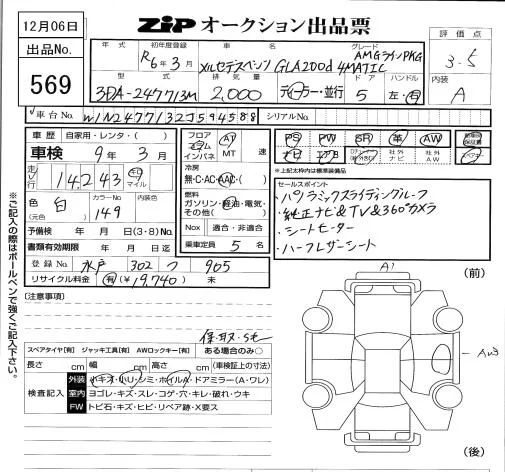 12月06日
出品No.
569
ZIP オークション出品票
評価点
3.5
内装
A
年式 初年度登録 車名 グレード
R6年3月 メルセデスベンツ GLA200d 4MATIC AMGラインPKG
型式 排気量 ドア ハンドル
3DA-247713M 2,000 ディーゼラー・並行 5 左・右
車台No. W1N2477132J594588 シリアルNo.
車歴 自家用・レンタ( )
車検 9年3月
走行 14,243 キロ マイル
色(元色) 白 カラーNo 149 内装色
予備検 年 月 日(3・8)No.
書類有効期限 年 月 日迄
登録No 水戸 302 つ 905
リサイクル料金 有(¥19,740) 未
フロア コラム インパネ AT MT 速
冷房 無・C・AC・AAC・( )
燃料 ガソリン・軽油・電気・その他( )
Nox 適合・非適合
乗車定員 5名
PS PW SR 革 AW
ナビ エアB 社外ナビ 社外AW
*上記太枠内は標準装備
セールスポイント
・パノラミックスライディングルーフ
・純正ナビ&TV&360°カメラ
・シートヒーター
・ハーフレザーシート
※ご記入の際はボールペンで強くご記入下さい。
[注意事項]
スペアタイヤ[有] ジャッキ工具[有] AWロックキー[有] ある場合のみ○
長さ cm 幅 cm 高さ cm (車検証上の寸法)
検査記入
外装 小キズ・小U・シミ・ホイルA・ドアミラー(A・ワレ)
室内 ヨゴレ・キズ・スレ・コゲ・穴・キレ・破れ・ウキ
FW トビ石・キズ・ヒビ・リペア跡・X要ス
A1
(前)
(後)